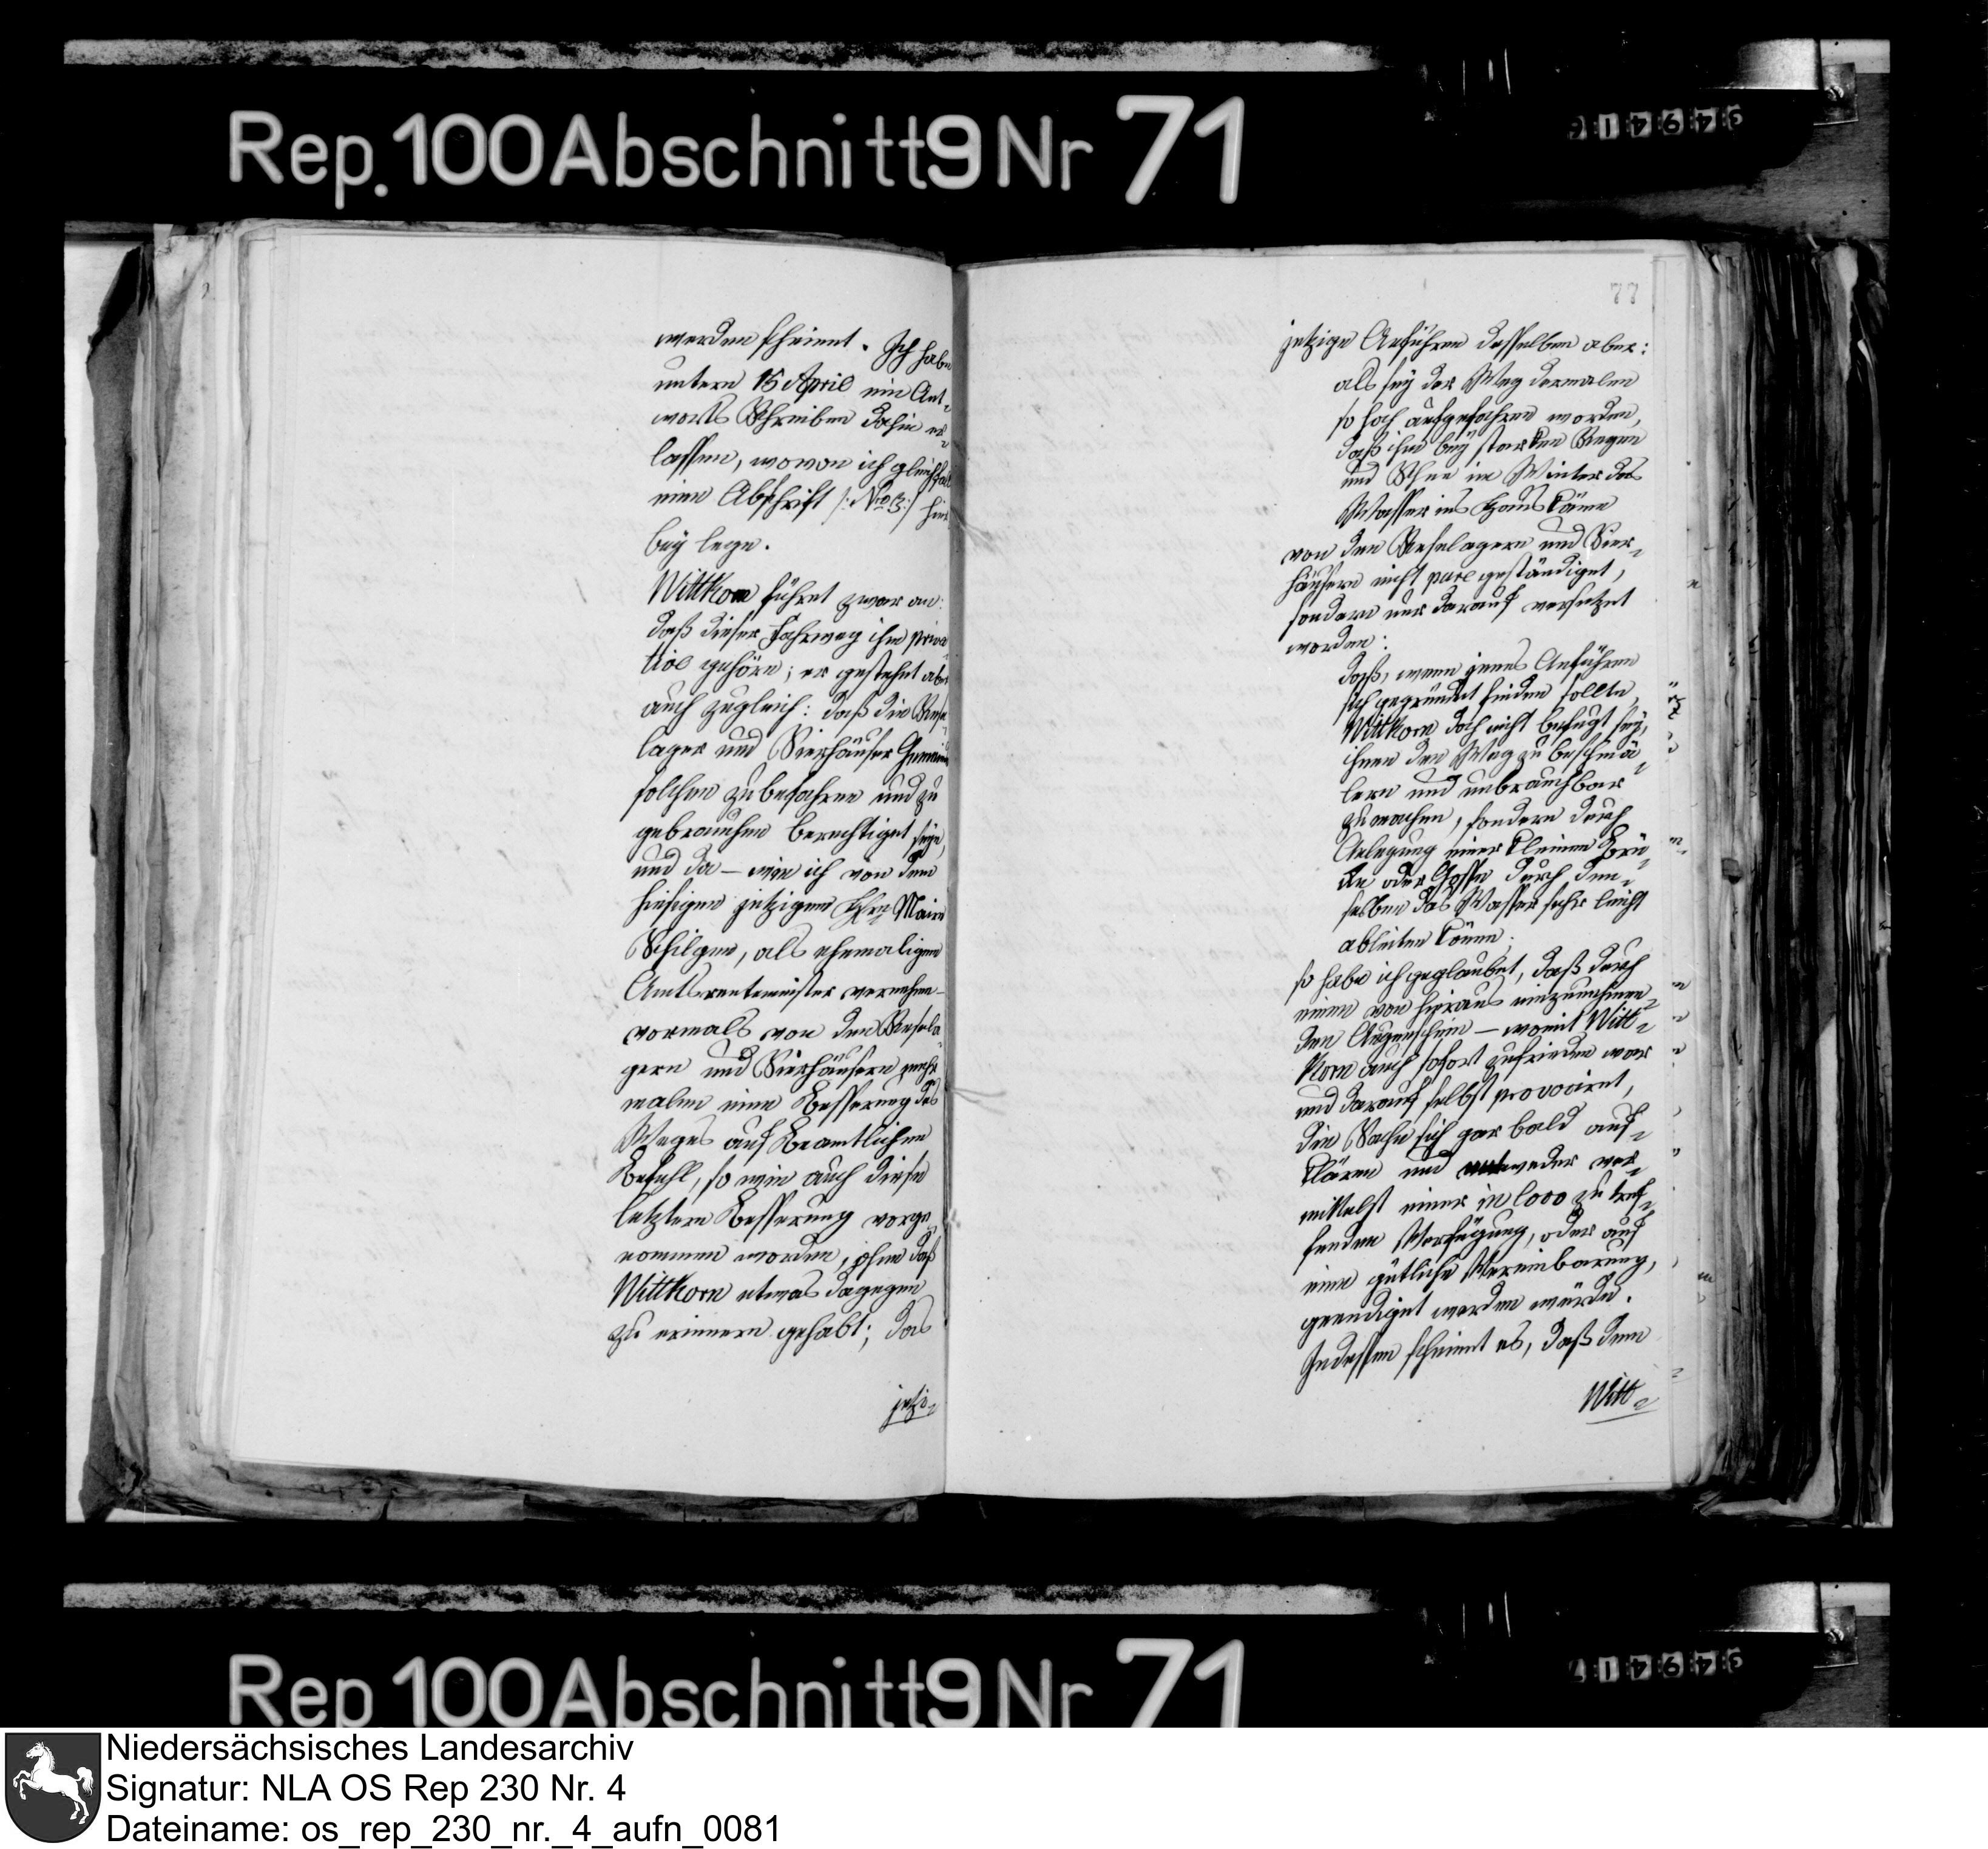 Rep. 100 Abschnitt 9 Nr 71
werden scheint. Ich habe
untern 15 April ein Ant-
worts Schreiben dahin er-
lassen, wovon ich gleichfals
eine Abschrift /: Nro 3:/ hier
bey lege.
Wittkorn führet zwar an:
daß dieser Fahrweg ihm priva-
tive gehöre; er gestehet aber
auch zugleich: daß die Rese-
lager und Sierhäuser Gemeine
solchen zu befahren und zu
gebrauchen berechtiget seye,
und da – wie ich von dem
hiesigen jetzigen Hrn Maire
Schilgen, als ehemaligen
Amtsrentemeister vernehme –
vormals von den Resela-
gern und Sierhäusern mehr-
malen eine Besserung des
Weges auf Beamtlichen
Befehl, so wie auch diese
letztere Besserung vorge-
nommen worden, ohne daß
Wittkorn etwas dagegen
zu erinnern gehabt; das
jetzi-
77
jetzige Anführen desselben aber:
als sey der Weg dermalen
so hoch aufgefahren worden,
daß ihm bey starken Regen
und Schnee im Winter das
Wasser ins Haus käme
von den Reselagern und Sier-
häusern nicht pure geständiget,
sondern nur darauf versetzet
worden:
daß, wenn jenes Anführen
sich gegründet finden sollte,
Wittkorn doch nicht befugt sey,
ihnen den Weg zu beschmä-
lern und unbrauchbar
zu machen, sondern durch
Anlegung einer kleinen Brü-
cke oder Gosse durch den-
selben das Wasser sehr leicht
ableiten könne.
so habe ich geglaubet, daß durch
einen von hieraus einzunehmen-
den Augenschein – womit Witt-
korn auch sofort zufrieden war
und darauf selbst provociret,
die Sache sich gar bald auf-
klären und entweder ver-
mittelst einer in loco zu tref-
fenden Verfügung, oder auf
eine gütliche Vereinbarung,
geendiget werden würde.
Indessen scheint es, daß dem
Witt-
Rep 100 Abschnitt 9 Nr 71
Niedersächsisches Landesarchiv
Signatur: NLA OS Rep 230 Nr. 4
Dateiname: os_rep_230_nr._4_aufn_0081